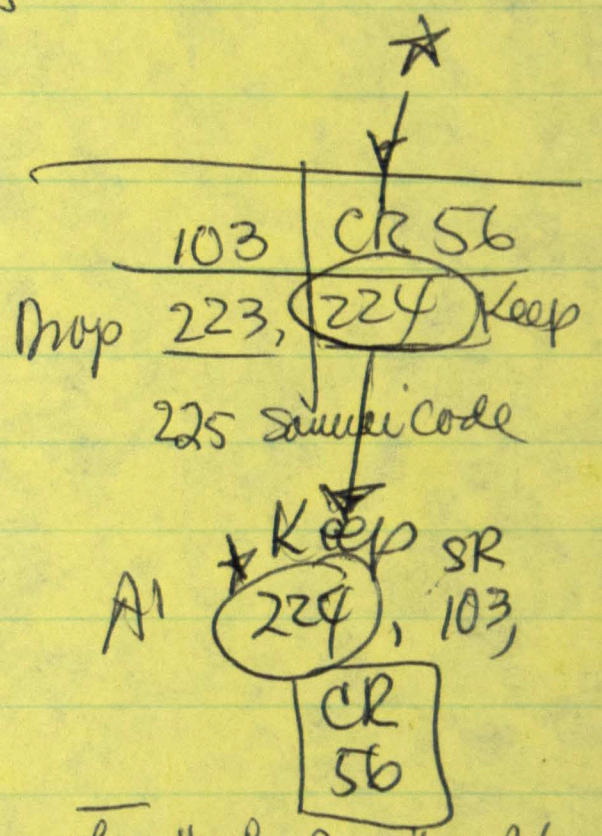 103 CR 56
Drop 223, 224 Keep
225 Samurai Code
Keep
SR
A1 224, 103,
CR
56